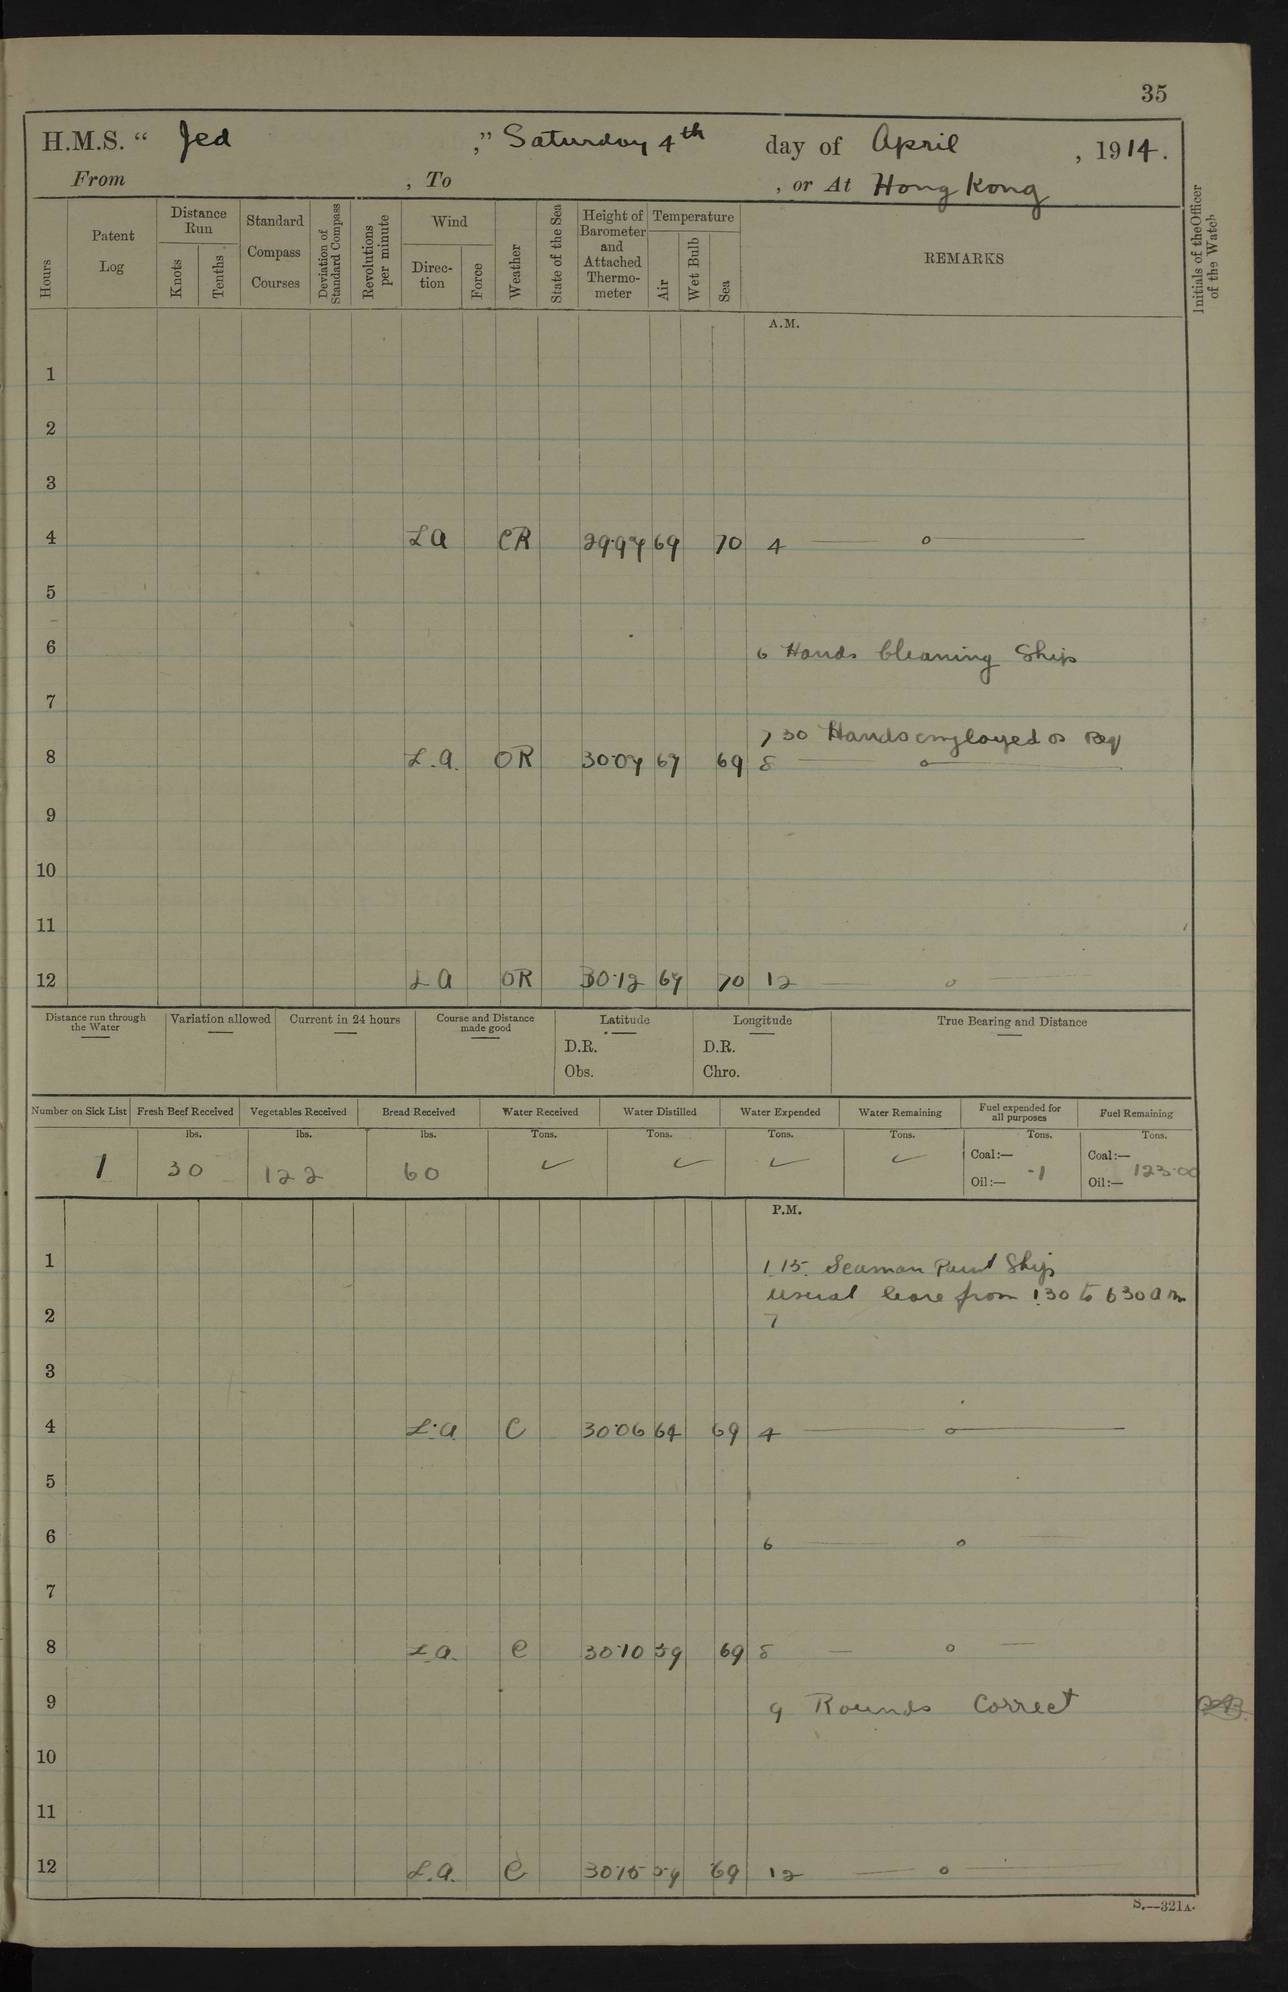 35
H.M.S. " Jed ," Saturday 4th day of April , 1914.
From , To , or At Hong Kong
Hours
Patent Log
Distance Run
Knots
Tenths
Standard Compass Courses
Deviation of Standard Compass
Revolutions per minute
Wind
Direc-tion
Force
Weather
State of the Sea
Height of Barometer and Attached Thermo-meter
Temperature
Air
Wet Bulb
Sea
REMARKS
Initials of the Officer of the Watch
A.M.
1
2
3
4 LA CR 29.97 69 70 4 —o—
5
6 6 Hands Cleaning Ship
7
7 30 Hands employed as Req
8 L.A. OR 30.07 67 69 8 —o—
9
10
11
12 LA OR 30.12 67 70 12 —o—
Distance run through the Water
Variation allowed
Current in 24 hours
Course and Distance made good
Latitude
D.R.
Obs.
Longitude
D.R.
Chro.
True Bearing and Distance
Number on Sick List Fresh Beef Received Vegetables Received Bread Received Water Received Water Distilled Water Expended Water Remaining Fuel expended for all purposes Fuel Remaining
lbs. lbs. lbs. Tons. Tons. Tons. Tons. Tons. Tons.
1 30 122 60 ✓ ✓ ✓ ✓ Coal:— Oil:— .1 Coal:— Oil:— 123.00
P.M.
1 1.15. Seaman Paint Ship
usual leave from 1.30 to 6 30 a m
2 7
3
4 L.A. C 30.06 64 69 4 —o—
5
6 6 —o—
7
8 L.A. C 30.10 59 69 8 —o—
9 9 Rounds Correct
10
11
12 L.A. C 30.15 59 69 12 —o—
S.—321A.